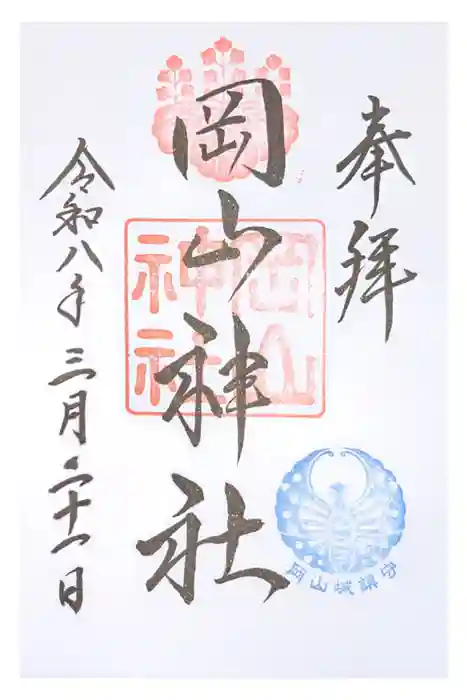 奉拝
岡山神社
岡山
神社
岡山城鎮守
令和八年三月二十一日